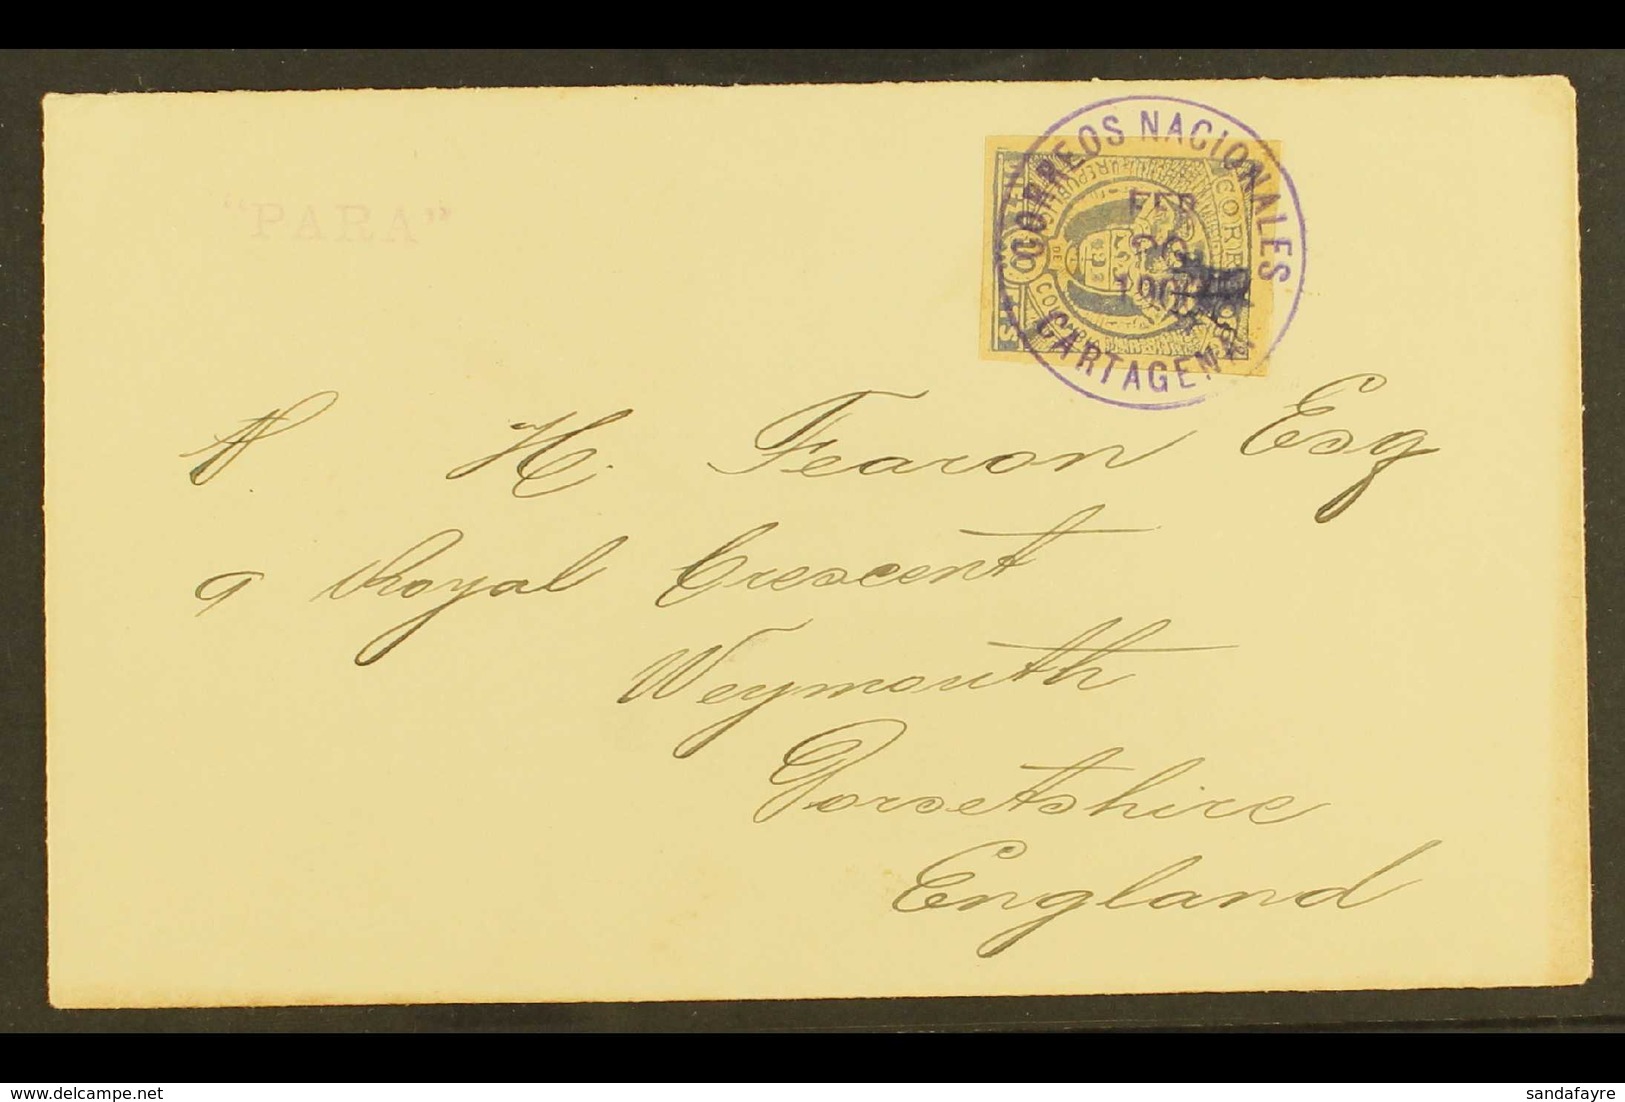 "PARA"
CORREOS NACIONALES
FEB
26
CARTAGENA
REPUBLICA
DE
H. Fearon Esq
9 Royal Crescent
Weymouth
Dorsetshire
England
delcampe.net
sandafayre